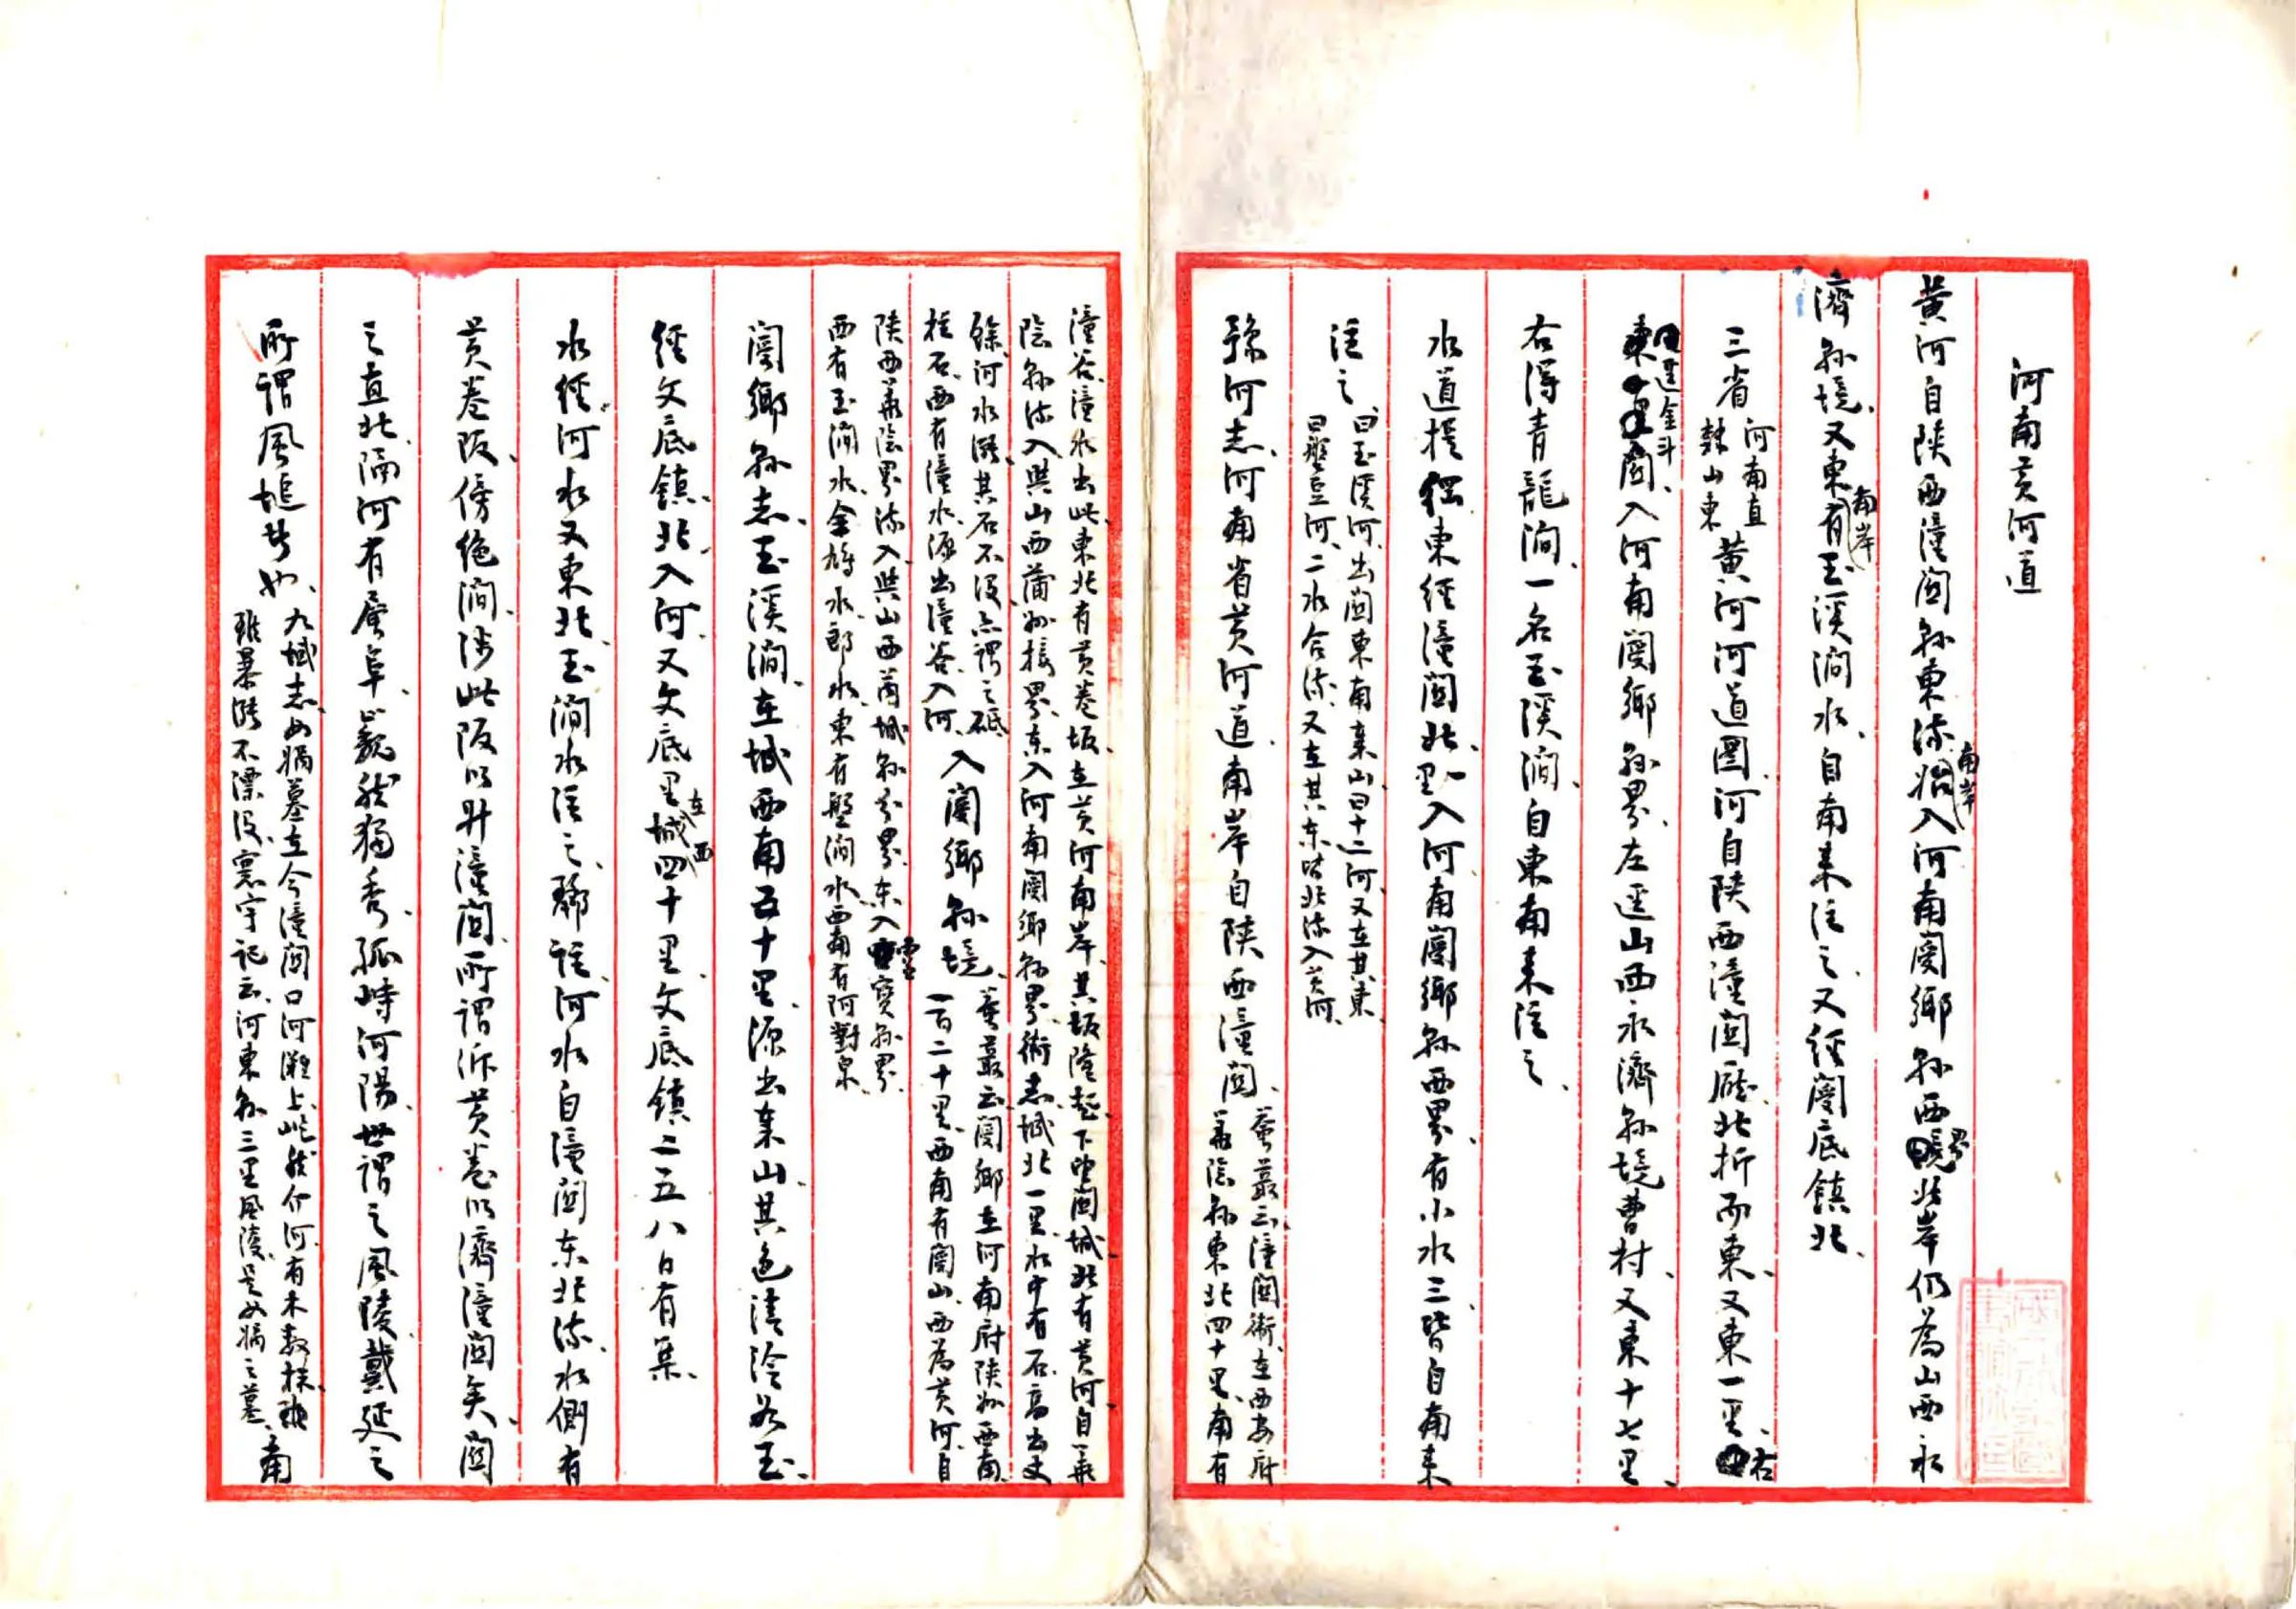 河南黄河道
黄河自陝西潼関縣東流南岸始入河南閿鄉縣西界北岸仍為山西永
濟縣境又東南岸有玉溪澗水自南来注之又經閿底鎮北
三省河南直隸山東黄河河道圖河自陝西潼関廳北折而東又東一里右
逕金斗関入河南閿鄉縣界左逕山西永濟縣境曹村又東十七里
右得青龍澗一名玉溪澗自東南来注之
水道提綱東經潼関北一里入河南閿鄉縣西界有小水三皆自南来
注之曰玉溪河出閿東南秦山曰十二河又在其東
曰盤豆河二水合流又在其东皆北流入黄河
豫河志河南省黄河道南岸自陝西潼関
叢云潼関衛在西安府
華陰縣東北四十里南有
潼谷潼水出此東北有黄巷坂在黄河南岸其坂隆起下望関城北有黄河自華
陰縣流入與山西蒲州接界东入河南閿鄉縣界衛志城北一里水中有石高出丈
餘河水漲其石不没亦謂之砥
柱石西有潼水源出潼谷入河
入閿鄉縣境
叢云閿鄉在河南府陝州西南
一百二十里西南有閿山西為黄河自
陝西華陰界流入與山西芮城縣分界东入靈寶縣界
西有玉澗水金鳩水郎水東有盤澗水西南有阿對泉
閿鄉縣志玉溪澗在城西南五十里源出秦山其色清泠若玉
經文底鎮北入河又文底里在城西四十里文底鎮二五八日有集
水經河水又東北玉澗水注之酈注河水自潼関东北流水側有
黄巷坂傍絶澗涉此坂以升潼関所謂泝黄巷以濟潼関矣関
之直北隔河有層阜巍然獨秀孤峙河陽世謂之風陵戴延之
所謂風塠者也
九域志女媧墓在今潼関口河灘上屹然介河有木数株
雖暴漲不漂没寰宇記云河東縣三里風陵是女媧之墓
南